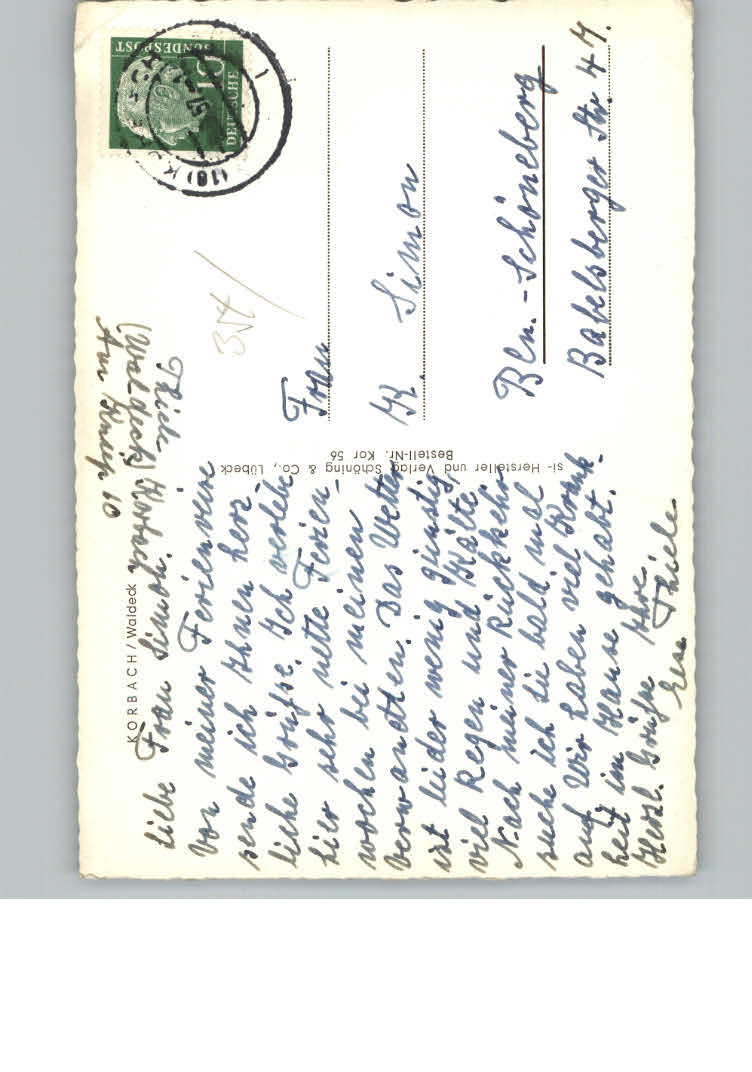 KORBACH / Waldeck
Thiele
(Waldeck) Korbach
Am Kniep 10
Liebe Frau Simon.
Von meiner Ferienreise
sende ich Ihnen herz
liche Grüße. Ich verlebe
hier sehr nette Ferien-
wochen bei meinen
Verwandten. Das Wetter
ist leider wenig günstig,
viel Regen und Kälte.
Nach meiner Rückkehr
suche ich sie bald mal
auf. Wir haben viel Krank-
heit im Hause gehabt.
Herzl. Grüße Ihre
Thiele
si- Hersteller und Verlag Schöning & Co., Lübeck
Bestell-Nr. Kor 56
DEUTSCHE
BUNDESPOST
10
(16) KORBACH
1
35
Frau
K. Simon
Bln.-Schöneberg
Babelsberger Str. 47.